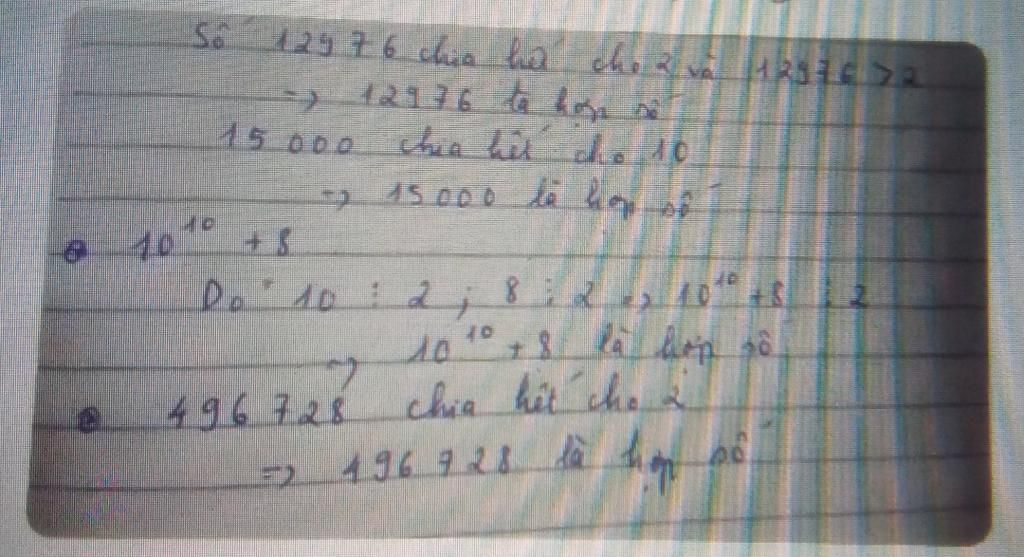 Số 12976 chia hết cho 2 và 12976 > 2
=> 12976 là hợp số
15000 chia hết cho 10
=> 15000 là hợp số
10¹⁰ + 8
Do 10 ⋮ 2 ; 8 ⋮ 2 => 10¹⁰ + 8 ⋮ 2
=> 10¹⁰ + 8 là hợp số
496728 chia hết cho 2
=> 496728 là hợp số